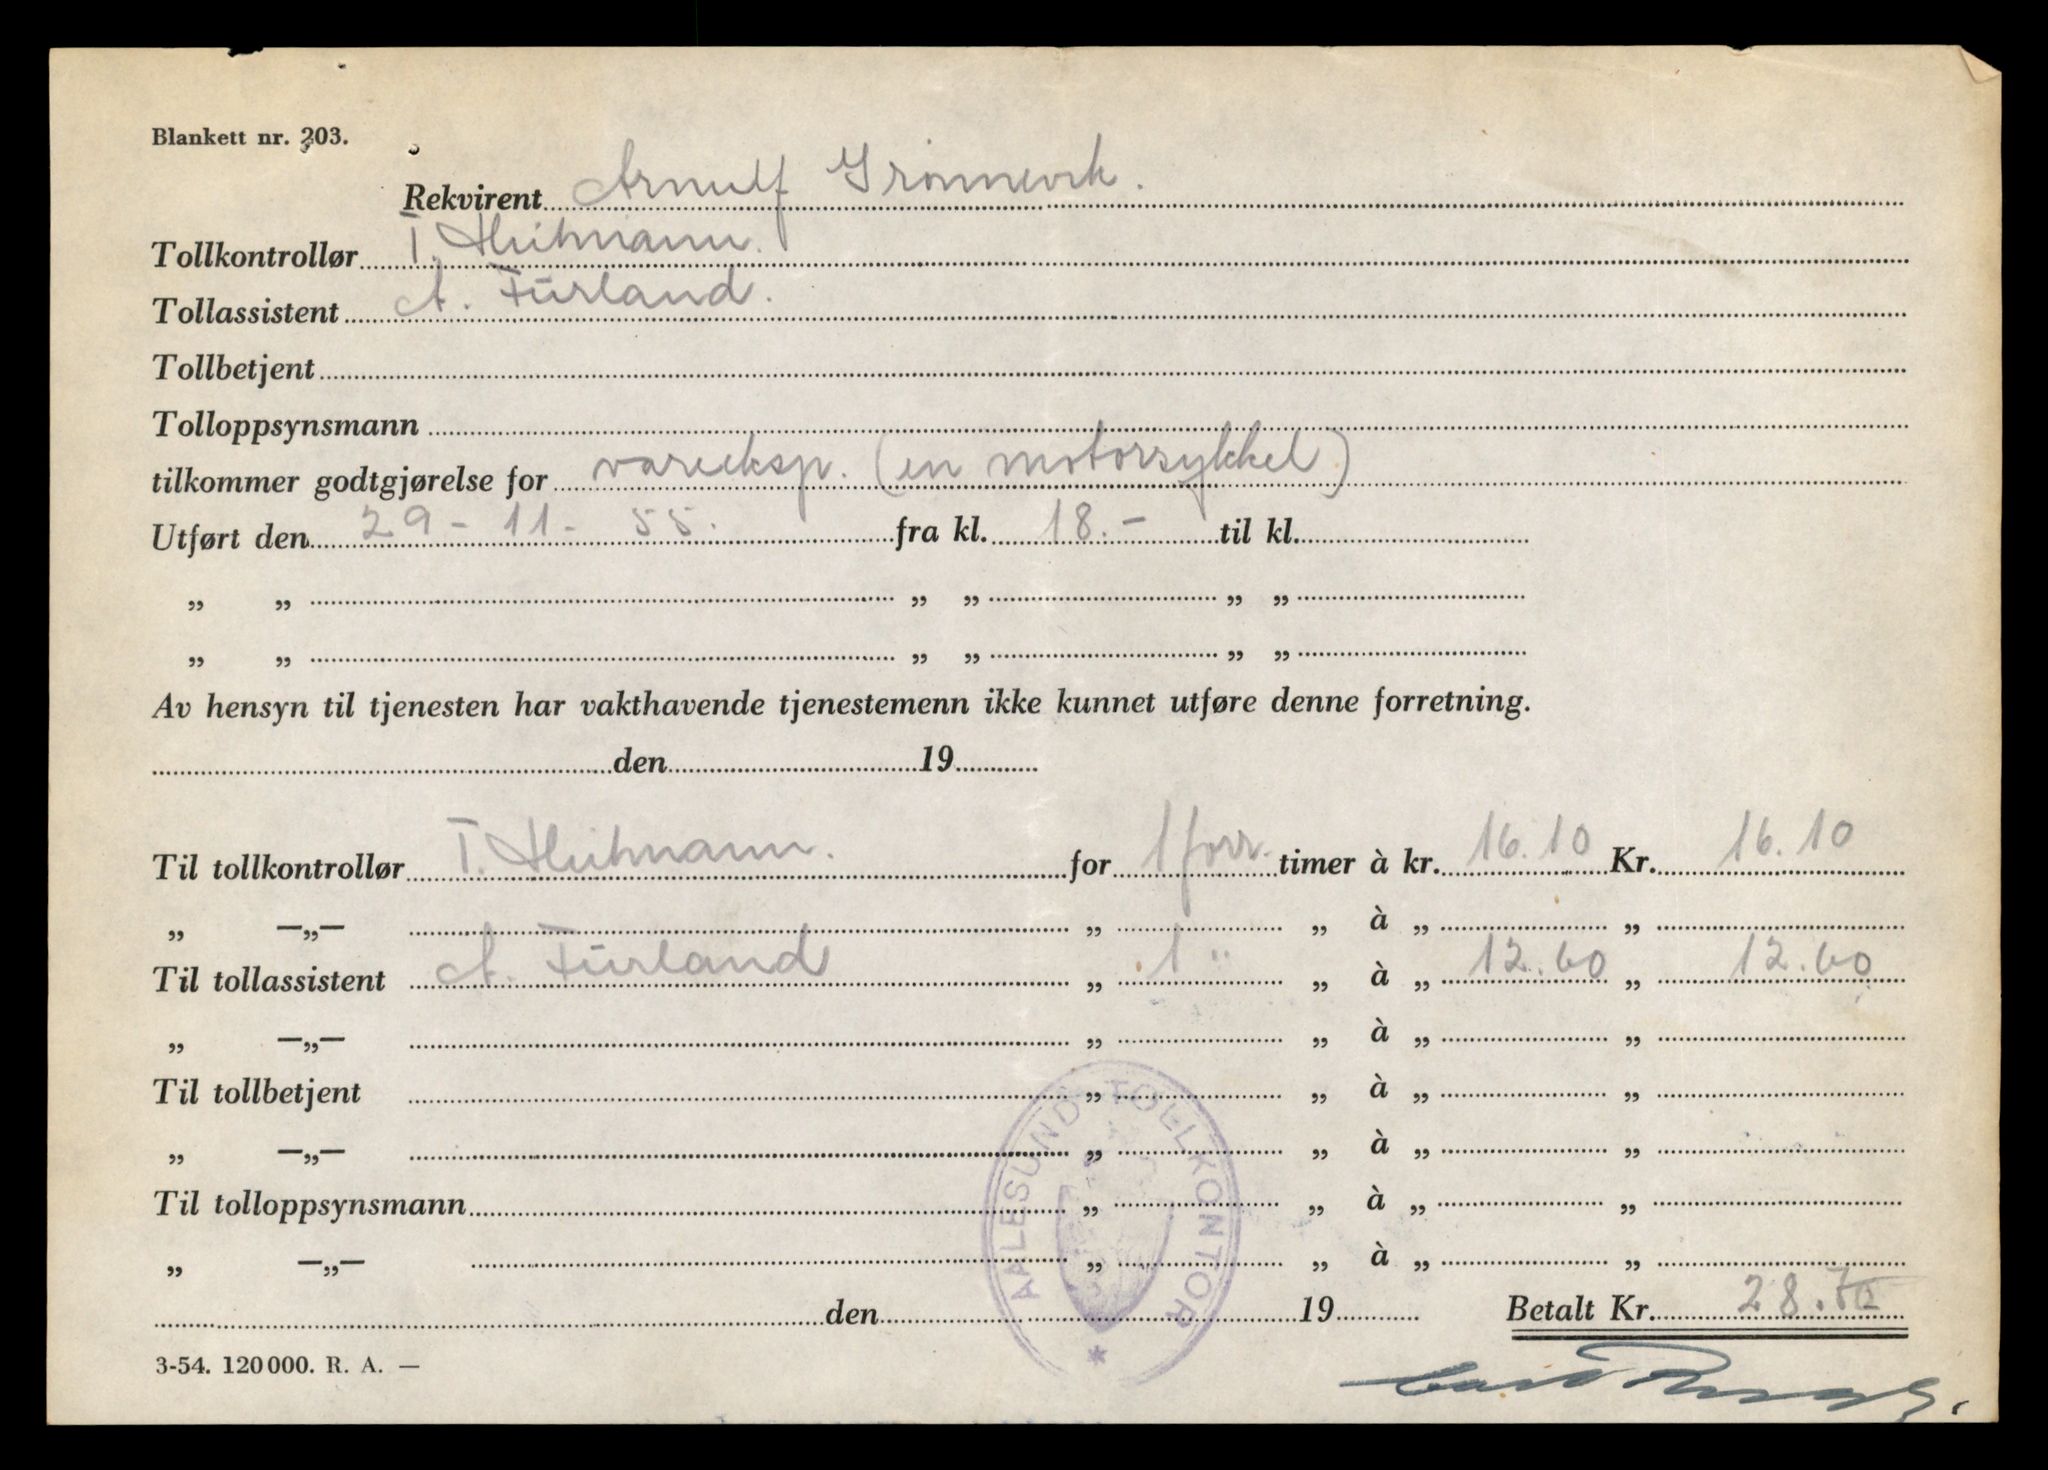 Blankett nr. 203.
Rekvirent Arnulf Grønnevik.
Tollkontrollør T.
Tollassistent A. Furland.
Tollbetjent
Tolloppsynsmann
tilkommer godtgjørelse for vareeksp. (en motorsykkel)
Utført den 29 - 11 - 55. fra kl. 18.- til kl.
„ „ „ „ „ „
„ „ „ „ „ „
Av hensyn til tjenesten har vakthavende tjenestemenn ikke kunnet utføre denne forretning.
den 19
Til tollkontrollør T. for 1 forr. timer à kr. 16.10 Kr. 16.10
„ —„— „ „ à „ „
Til tollassistent A. Furland „ 1 " „ à „ 12.60 „ 12.60
„ —„— „ „ à „ „
Til tollbetjent „ „ à „ „
„ —„— „ „ à „ „
Til tolloppsynsmann „ „ à „ „
„ —„— „ „ à „ „
den 19 Betalt Kr. 28.70
AALESUND TOLLKONTOR
3-54. 120 000. R. A. —